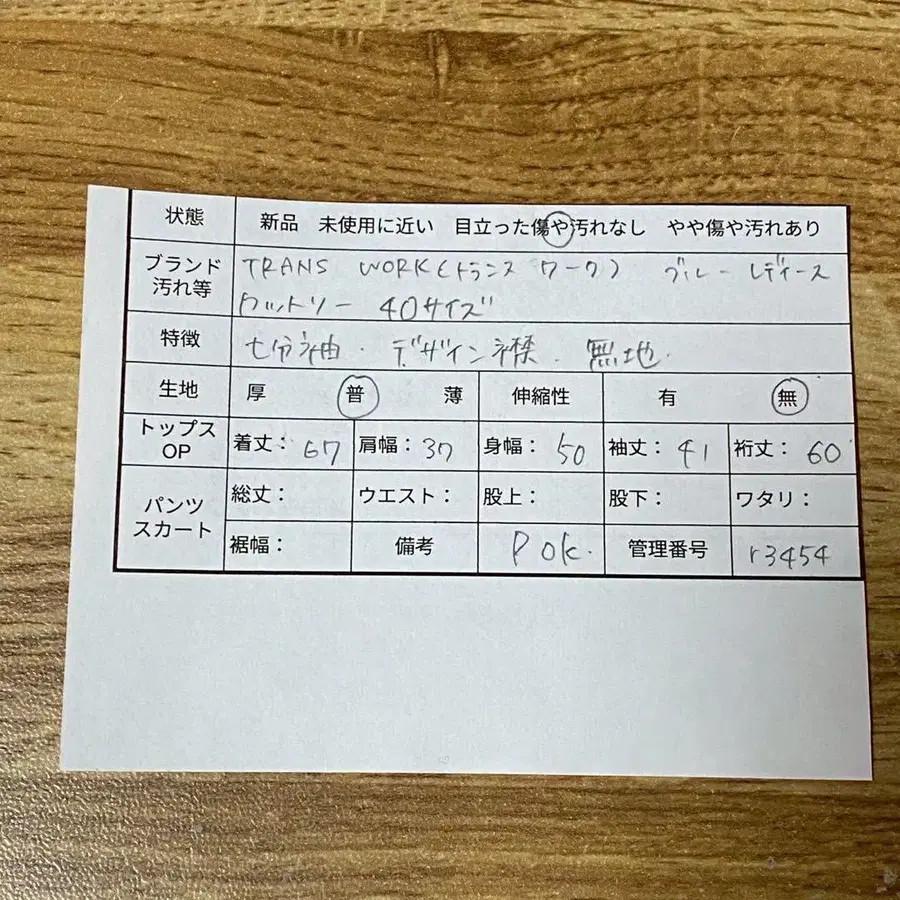 状態 新品 未使用に近い 目立った傷や汚れなし やや傷や汚れあり
ブランド 汚れ等 TRANS WORK(トランス ワーク) ブルー レディース
カットソー 40サイズ
特徴 七分袖. デザイン襟. 無地.
生地 厚 普 薄 伸縮性 有 無
トップス OP 着丈: 67 肩幅: 37 身幅: 50 袖丈: 41 裄丈: 60
パンツ スカート 総丈: ウエスト: 股上: 股下: ワタリ:
裾幅: 備考 P ok. 管理番号 r3454